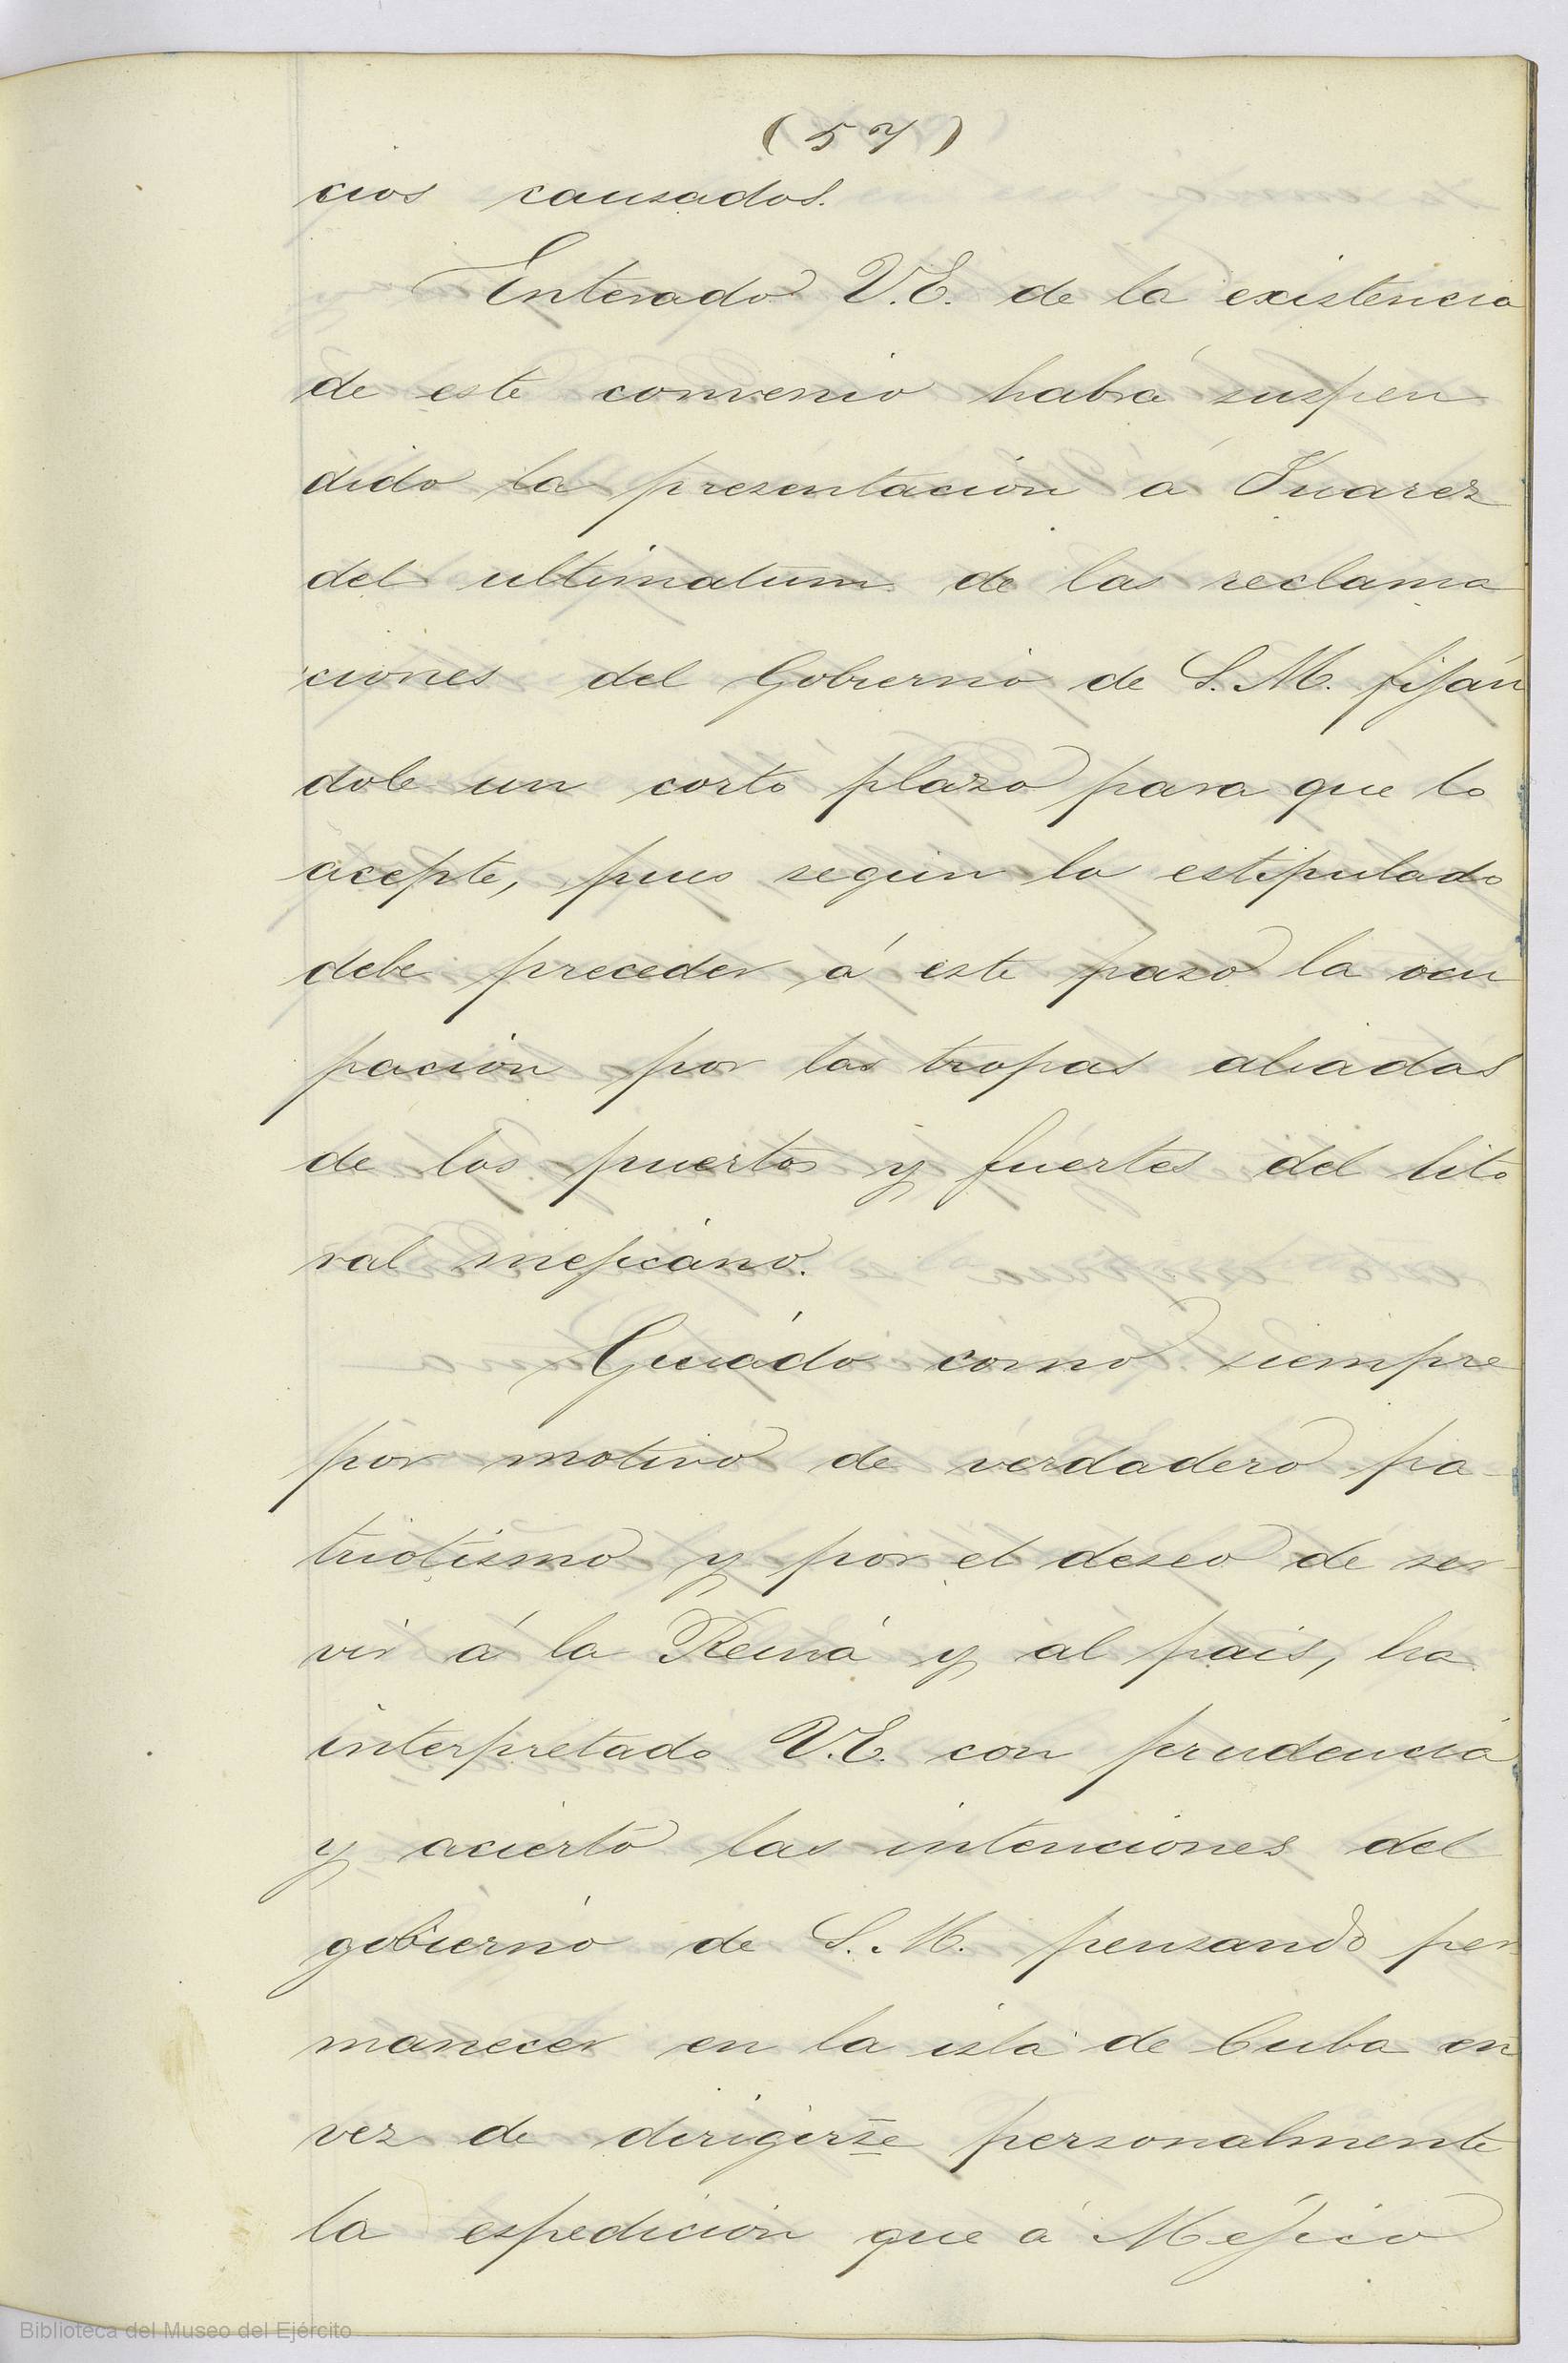 (57)
cios causados.
Enterado V.E. de la existencia
de este convenio habrá suspen
dido la presentación á Juarez
del ultimatum de las reclama
ciones del Gobierno de S. M. fiján
dole un corto plazo para que lo
acepte, pues según lo estipulado
debe preceder á este paso la ocu
pación por las tropas aliadas
de los puertos y fuertes del lito
ral mejicano.
Guiado como siempre
por motivo de verdadero pa-
triotismo y por el deseo de ser-
vir á la Reina y al pais, ha
interpretado V.E. con prudencia
y acierto las intenciones del
gobierno de S. M. pensando per
manecer en la isla de Cuba en
vez de dirigirse personalmente
la espedición que á Méjico
Biblioteca del Museo del Ejército